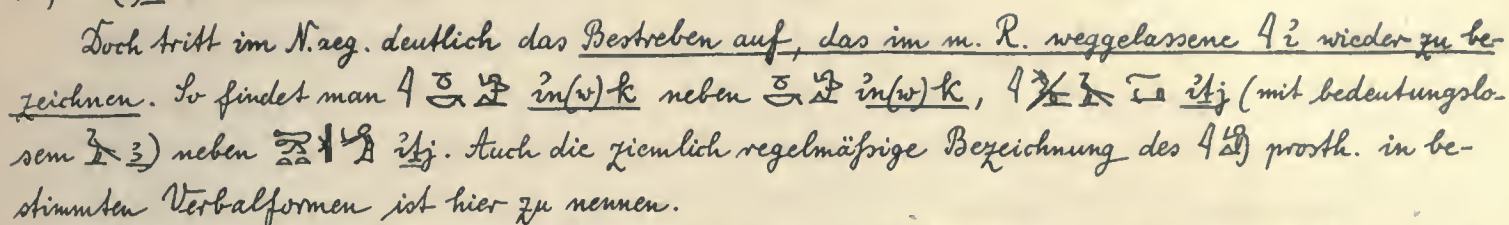 Doch tritt im N.aeg. deutlich das Bestreben auf, das im m. R. weggelassene 𓇋 ỉ wieder zu be-
zeichnen. So findet man 𓇋 ỉn(w)k neben ỉn(w)k, 𓇋 ỉṯj (mit bedeutungslo-
sem 𓄿 ꜣ) neben ỉṯj. Auch die ziemlich regelmäßige Bezeichnung des 𓇋𓀁 prosth. in be-
stimmten Verbalformen ist hier zu nennen.